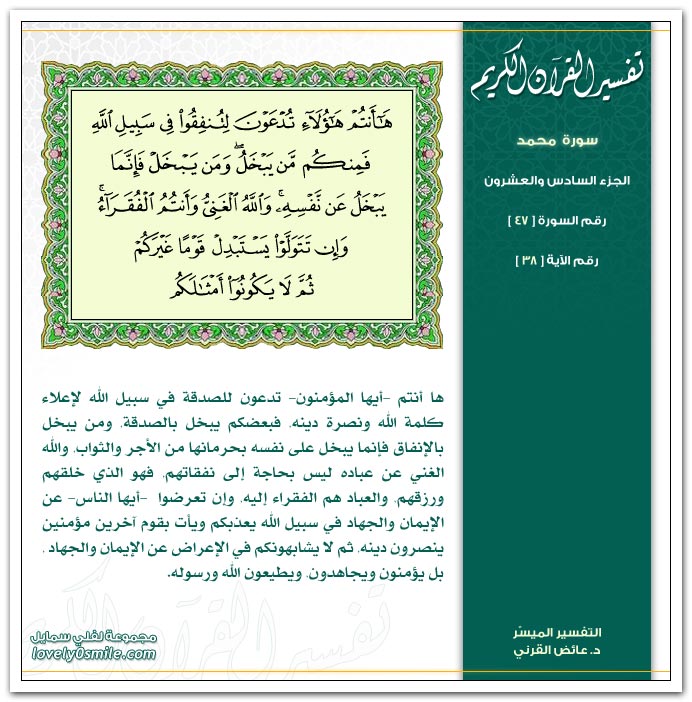 تفسير القرآن الكريم
سورة محمد
الجزء السادس والعشرون
رقم السورة [ ٤٧ ]
رقم الآية [ ٣٨ ]
هَٰٓأَنتُمْ هَٰٓؤُلَآءِ تُدْعَوْنَ لِتُنفِقُوا۟ فِى سَبِيلِ ٱللَّهِ
فَمِنكُم مَّن يَبْخَلُ ۖ وَمَن يَبْخَلْ فَإِنَّمَا
يَبْخَلُ عَن نَّفْسِهِۦ ۚ وَٱللَّهُ ٱلْغَنِىُّ وَأَنتُمُ ٱلْفُقَرَآءُ ۚ
وَإِن تَتَوَلَّوْا۟ يَسْتَبْدِلْ قَوْمًا غَيْرَكُمْ
ثُمَّ لَا يَكُونُوٓا۟ أَمْثَٰلَكُم
ها أنتم -أيها المؤمنون- تدعون للصدقة في سبيل الله لإعلاء
كلمة الله ونصرة دينه، فبعضكم يبخل بالصدقة، ومن يبخل
بالإنفاق فإنما يبخل على نفسه بحرمانها من الأجر والثواب، والله
الغني عن عباده ليس بحاجة إلى نفقاتهم، فهو الذي خلقهم
ورزقهم، والعباد هم الفقراء إليه، وإن تعرضوا -أيها الناس- عن
الإيمان والجهاد في سبيل الله يعذبكم ويأت بقوم آخرين مؤمنين
ينصرون دينه، ثم لا يشابهونكم في الإعراض عن الإيمان والجهاد ،
بل يؤمنون ويجاهدون، ويطيعون الله ورسوله.
تفسير القرآن الكريم
التفسير الميسّر
د. عائض القرني
مجموعة لفلي سمايل
lovely0smile.com